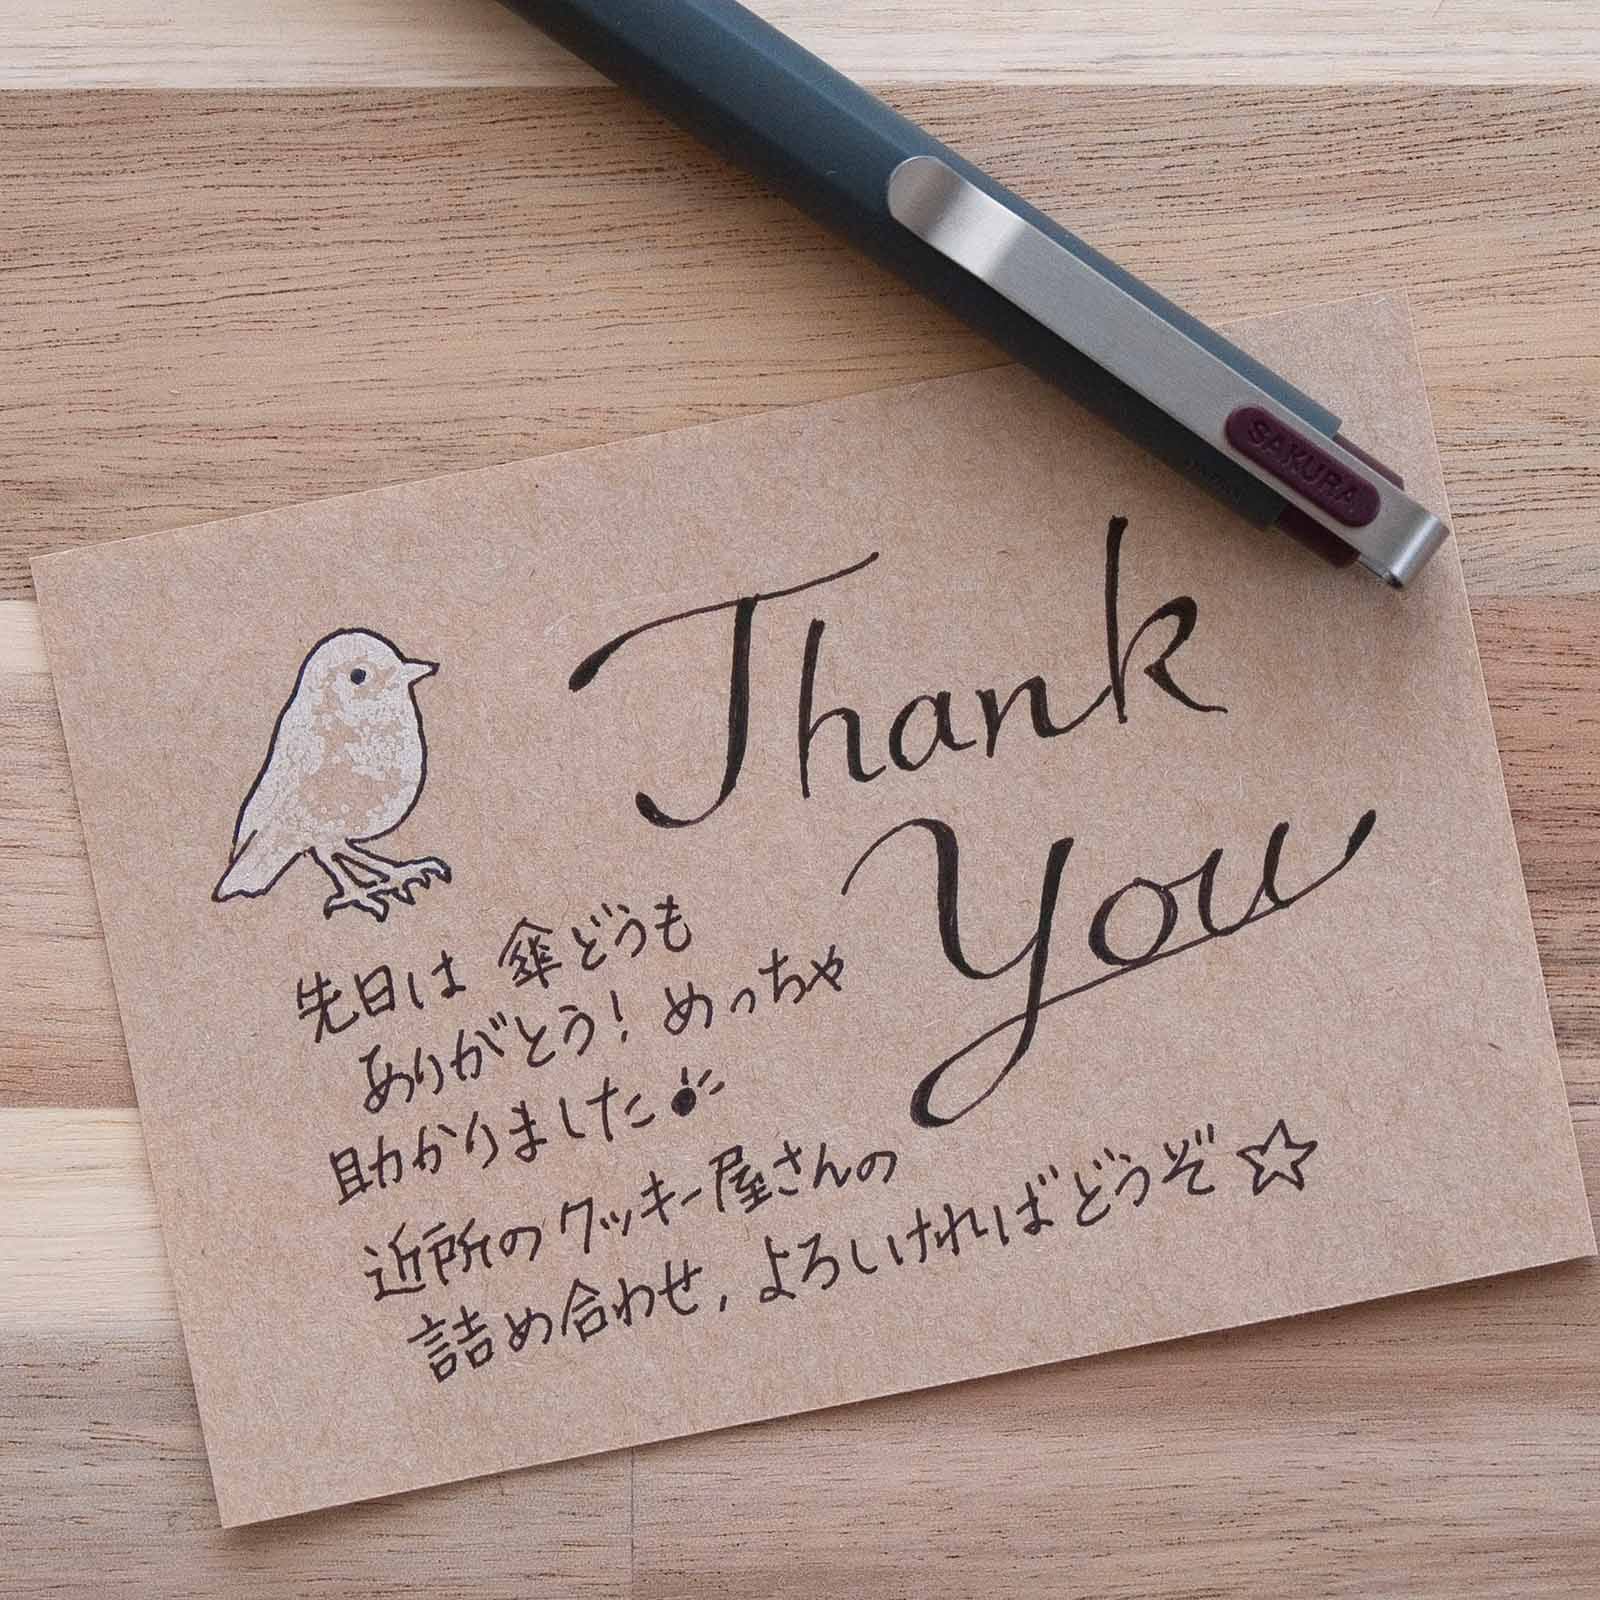 SAKURA
Thank
You
先日は 傘どうも
ありがとう! めっちゃ
助かりました
近所のクッキー屋さんの
詰め合わせ, よろしければどうぞ☆